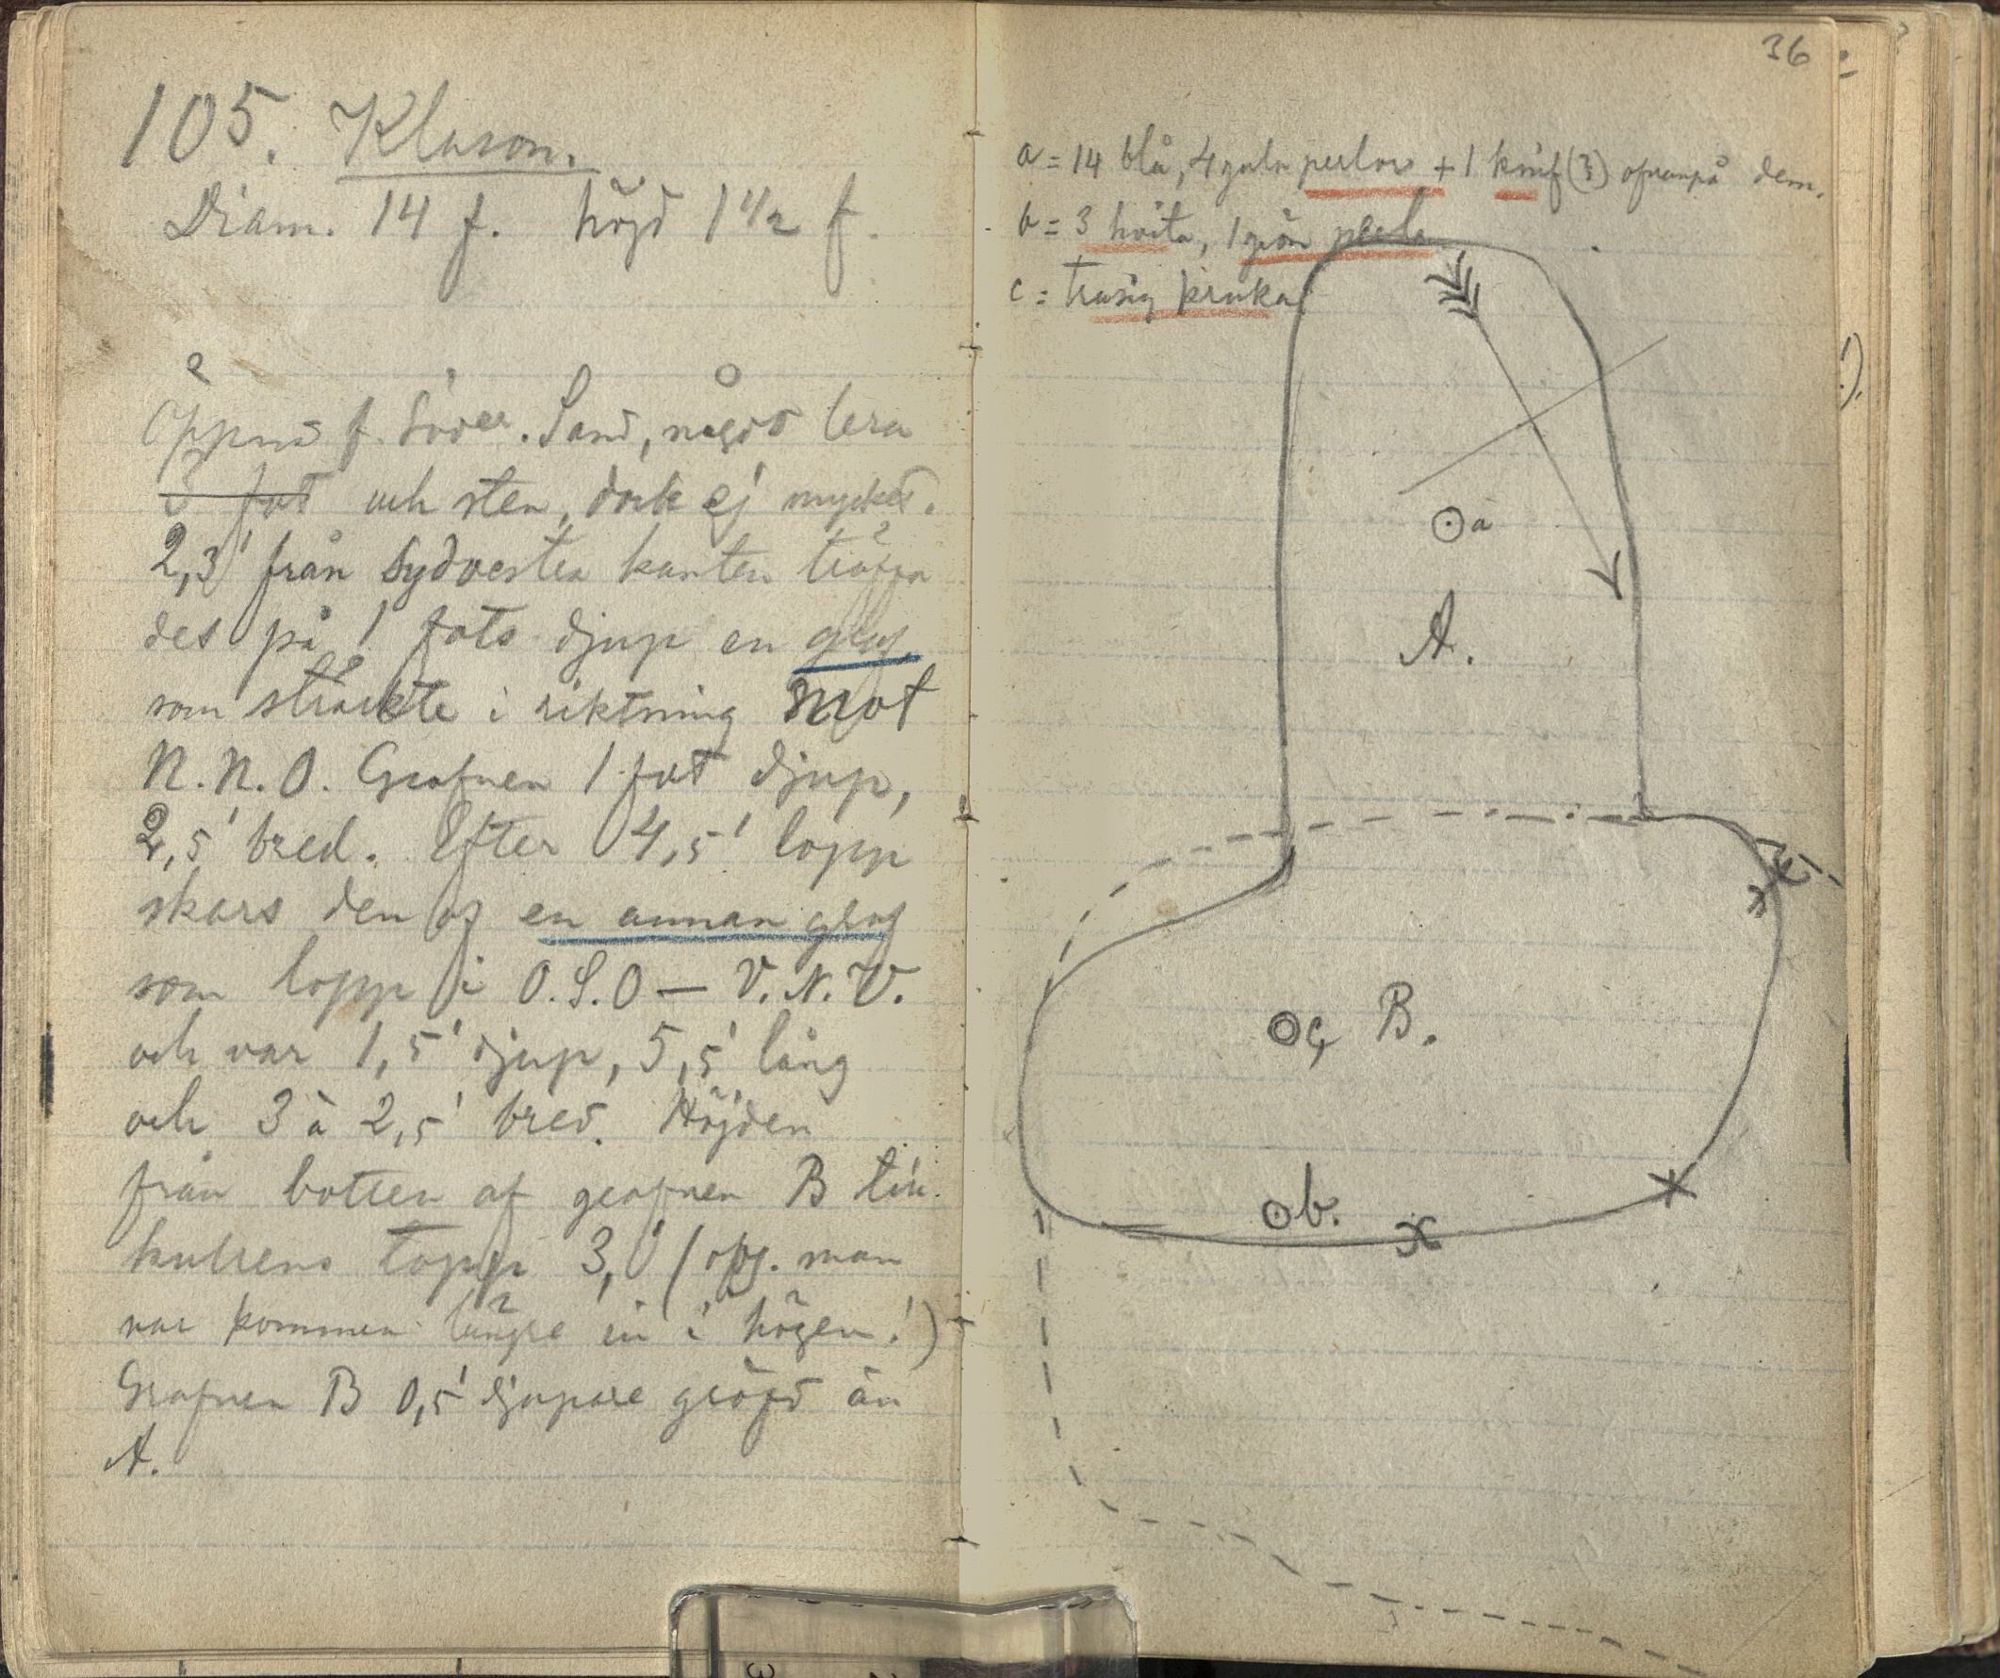 105. Klason.
Diam. 14 f. höjd 1 1/2 f.
Öppnad f. Söder. Sand, något lera
3 fot och sten, dock ej mycket.
2,3' från sydvestra kanten träffa
des på 1 fots djup en graf,
som sträckte i riktning mot
N.N.O. Grafven 1 fot djup,
2,5' bred. Efter 4,5' lopp
skars den af en annan graf
som lopp i O.S.O — V.N.V.
och var 1,5' djup, 5,5' lång
och 3 à 2,5' bred. Höjden
från botten af grafven B till
kullens topp 3,' (obs. man
var kommen längre in i högen!)
Grafven B 0,5' djupare gräfd än
A.
36
a = 14 blå, 4 gula perlor + 1 knif (?) ofvanpå dem.
b = 3 hvita, 1 grön perla
c = trasig kruka
a
A.
c, B.
b.